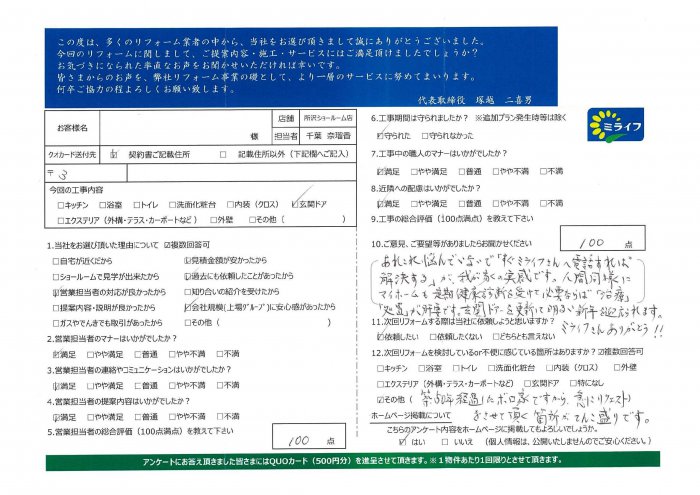 この度は、多くのリフォーム業者の中から、当社をお選び頂きまして誠にありがとうございました。
今回のリフォームに関しまして、ご提案内容・施工・サービスにはご満足頂けましたでしょうか？
お気づきになられた率直なお声をお聞かせいただければ幸いです。
皆さまからのお声を、弊社リフォーム事業の礎として、より一層のサービスに努めてまいります。
何卒ご協力の程よろしくお願い致します。
代表取締役 塚越 二喜男
ミライフ
お客様名 様
店舗 所沢ショールーム店
担当者 千葉 奈瑠香
クオカード送付先 ☑ 契約書ご記載住所 □ 記載住所以外（下記欄へご記入）
〒 3
今回の工事内容
□キッチン □浴室 □トイレ □洗面化粧台 □内装（クロス） ☑玄関ドア
□エクステリア（外構・テラス・カーポートなど） □外壁 □その他（ ）
1.当社をお選び頂いた理由について ☑複数回答可
□自宅が近くだから ☑見積金額が安かったから
□ショールームで見学が出来たから ☑過去にも依頼したことがあったから
☑営業担当者の対応が良かったから □知り合いの紹介を受けたから
□提案内容・説明が良かったから ☑会社規模(上場グループ)に安心感があったから
□ガスやでんきでも取引があったから □その他（ ）
2.営業担当者のマナーはいかがでしたか？
☑満足 □やや満足 □普通 □やや不満 □不満
3.営業担当者の連絡やコミュニケーションはいかがでしたか？
☑満足 □やや満足 □普通 □やや不満 □不満
4.営業担当者の提案内容はいかがでしたか？
☑満足 □やや満足 □普通 □やや不満 □不満
5.営業担当者の総合評価（100点満点）を教えて下さい
100 点
6.工事期間は守られましたか？ ※追加プラン発生時等は除く
☑守られた □守られなかった
7.工事中の職人のマナーはいかがでしたか？
☑満足 □やや満足 □普通 □やや不満 □不満
8.近隣への配慮はいかがでしたか？
☑満足 □やや満足 □普通 □やや不満 □不満
9.工事の総合評価（100点満点）を教えて下さい
100 点
10.ご意見、ご要望等がありましたらお聞かせください
あれこれ悩んでいないで「すぐミライフさんへ電話すれば
解決する」が、我が家の実感です。人間同様に
マイホームも定期健康診断を受けて必要ならば「治療」
「処置」が必要です。玄関ドアーを更新して明るい新年を迎えられます。
ミライフさんありがとう!!
11.次回リフォームする際は当社に依頼しようと思いますか？
☑依頼したい □依頼したくない □どちらとも言えない
12.次回リフォームを検討しているor不便に感じている箇所はありますか？ ☑複数回答可
□キッチン □浴室 □トイレ □洗面化粧台 □内装（クロス） □外壁
□エクステリア（外構・テラス・カーポートなど） □玄関ドア □特になし
☑その他（ 築50年経過したボロ家ですから、急にリクエスト）
させて頂く箇所がてんこ盛りです。
ホームページ掲載について
こちらのアンケート内容をホームページに掲載してもよろしいでしょうか。
☑ はい □ いいえ （個人情報は、公開いたしませんのでご安心ください。）
アンケートにお答え頂きました皆さまにはQUOカード（500円分）を進呈させて頂きます。※１物件あたり1回限りとさせて頂きます。